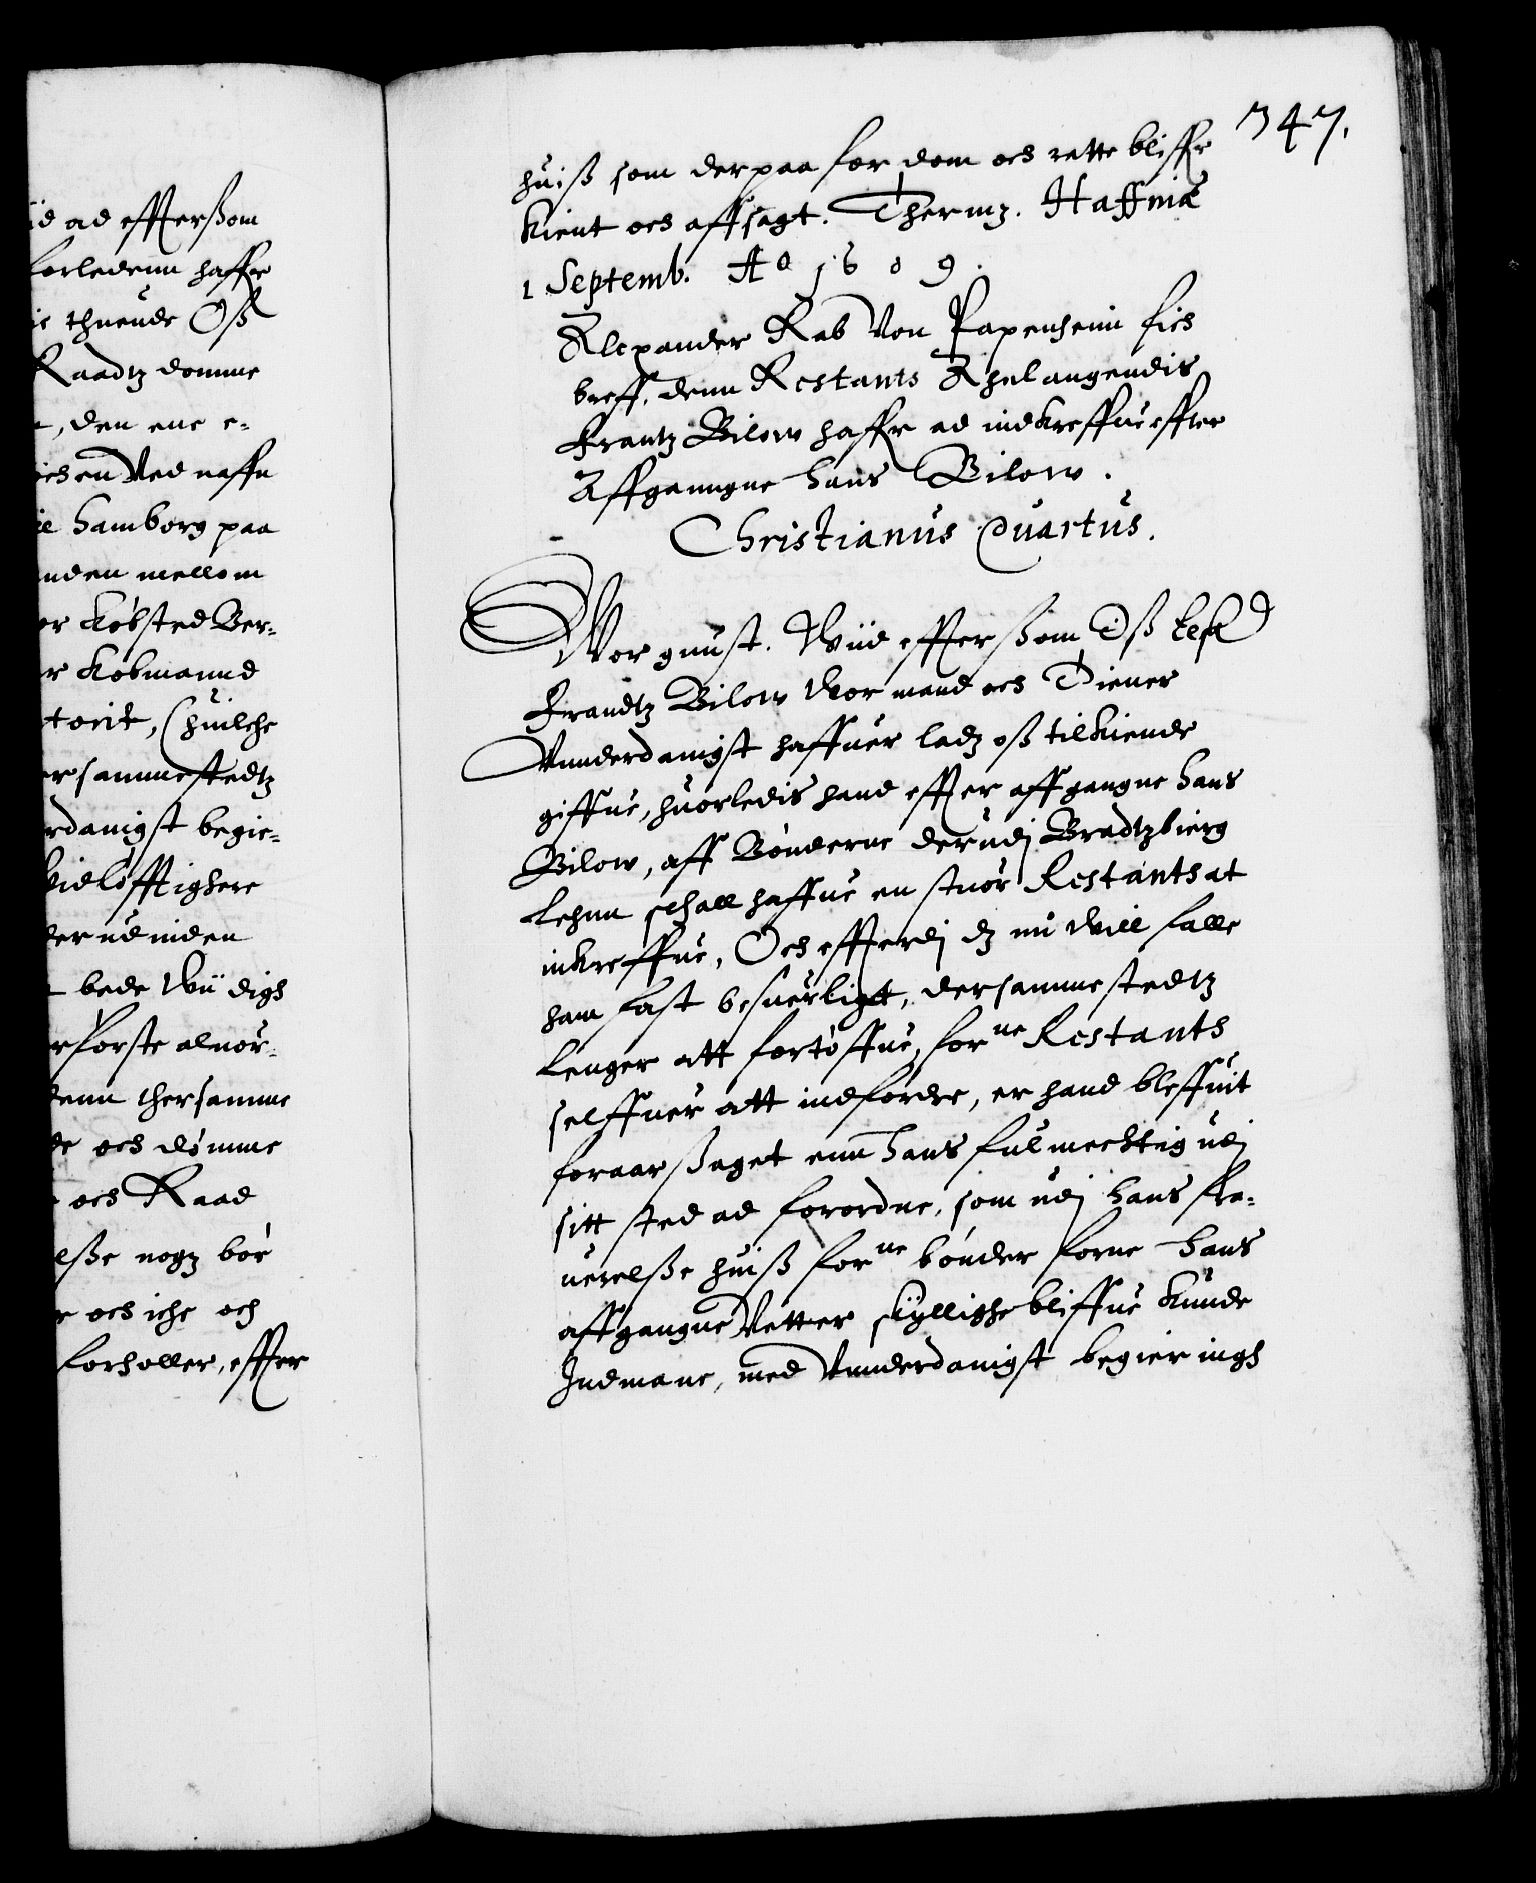 id ad effterßom
forledenn haffr
thuende Oß
Raadtz domme
, den ene e-
en Ved naffn
Hamborg paa
nden mellom
or Kôbsted Ber-
r Kôbmannd
torit, (huilche
ersammestedtz
rdanigst begie-
vidlôfftighere
der udinden
bede Wii digh
rforste aluor-
denn thersamme
de och dômme
och Raad
elße nogz bôr
r och iche och
forholler, effter
347.
huiß som derpaa for dom och rette bliffr
kient och affsagt. Thermz. Haffniæ
1 Septemb. Ao 1609.
Alexander Rab Von Papenheim fich
breff. denn Restants Anlangendis
Frantz Bilow haffr ad indkreffue effter
Affganngne Hans Bilow.
Christianus Quartus.
Wor gunst. Wiid effterßom Oß
Frandtz Bilow Wor mand och Tiener
Vnnderdanigst haffuer ladz oß tilkiende
giffue, huorledis hand effter affgangne Hans
Bilow, aff Bônderne derudj Bradtzbierg
Lehnn schall haffue en stuor Restants at
inkreffue, Och effterdj dz nu Will falle
ham fast besuerligt, dersammestedtz
lenger att fortôffue, forne Restants
selffuer att indfordre, er hand bleffuit
foraarßaget enn Hans fulmechtig udj
sitt sted ad forordne, som udj Hans fra-
uerelße huiß forne bônder forne Hans
affgangne Vetter skyllighe bliffue kunde
Indmane, med Vnnderdanigst begieringh